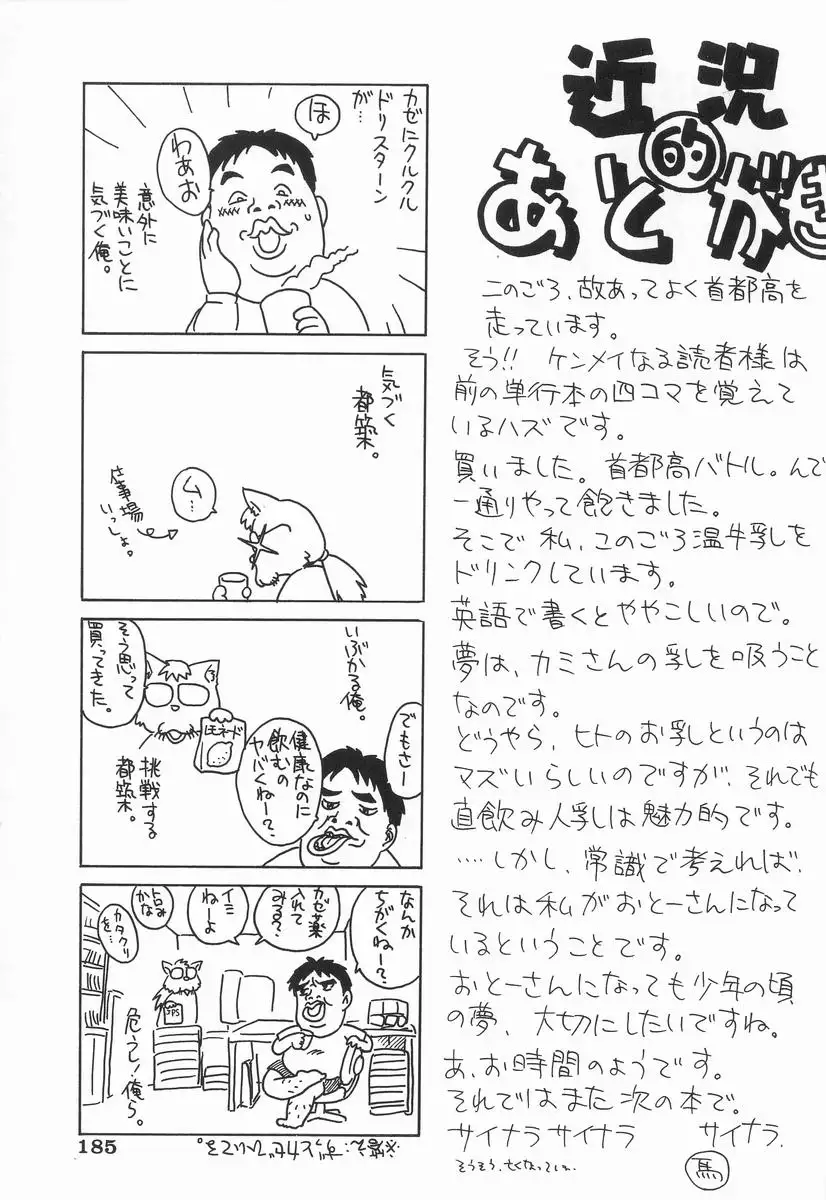 近況
的
あとがき
このごろ、故あってよく首都高を
走っています。
そう!! ケンメイなる読者様は
前の単行本の四コマを覚えて
いるハズです。
買いました。首都高バトル。んで
一通りやって飽きました。
そこで 私、このごろ温牛乳を
ドリンクしています。
英語で書くとややこしいので。
夢は、カミさんの乳を吸うこと
なのです。
どうやら、ヒトのお乳というのは
マズいらしいのですが、それでも
直飲み人乳は魅力的です。
‥‥しかし、常識で考えれば、
それは私がおとーさんになって
いるということです。
おとーさんになっても少年の頃
の夢、大切にしたいですね。
あ、お時間のようです。
それではまた次の本で。
サイナラサイナラ サイナラ.
馬
カゼにクルクル
ドリスターン
が…
ほ
わぁお
意外に
美味いことに
気づく俺。
気づく
都築。
ム…
仕事場
いっしょ。
いぶかる俺。
でもさー
健康なのに
飲むの
ヤバくねー?
そう思って
買ってきた。
レモネード
挑戦する
都築。
なんか
ちがくねー?
カゼ薬
入れて
みる?
イミ
ねーよ
旨み
かな
カタクリ
を…
JPS
危うし!俺ら。
185